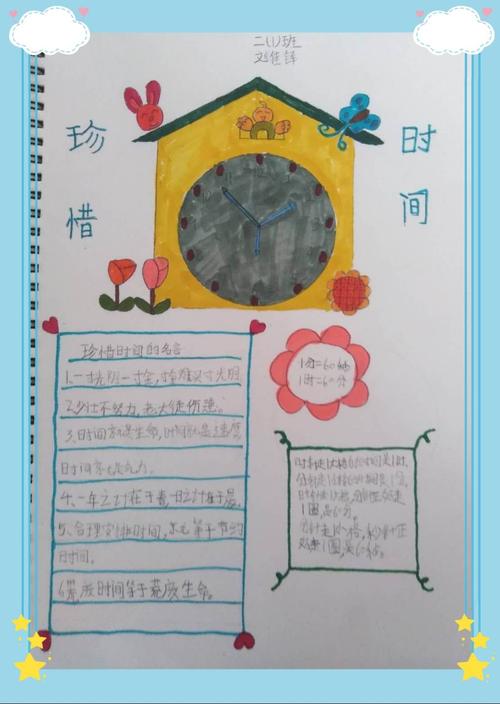 二(1)班
珍惜
时间
珍惜时间的名言
1.一寸光阴一寸金,寸金难买寸光阴
2.少壮不努力,老大徒伤悲。
3.时间就是生命,时间就是速度
时间就是力
4、一年之计在于春,一日之计在于晨。
5、合理安排时间,就等于节约
时间。
6荒废时间等于荒废生命。
1分=60秒
1时=60分
时针走1大格的时间是1时。
分针走1小格的时间是1分。
时针走1大格,分针正好走
1圈,是60分。
分针走1小格,秒针正
好走1圈,是60秒。